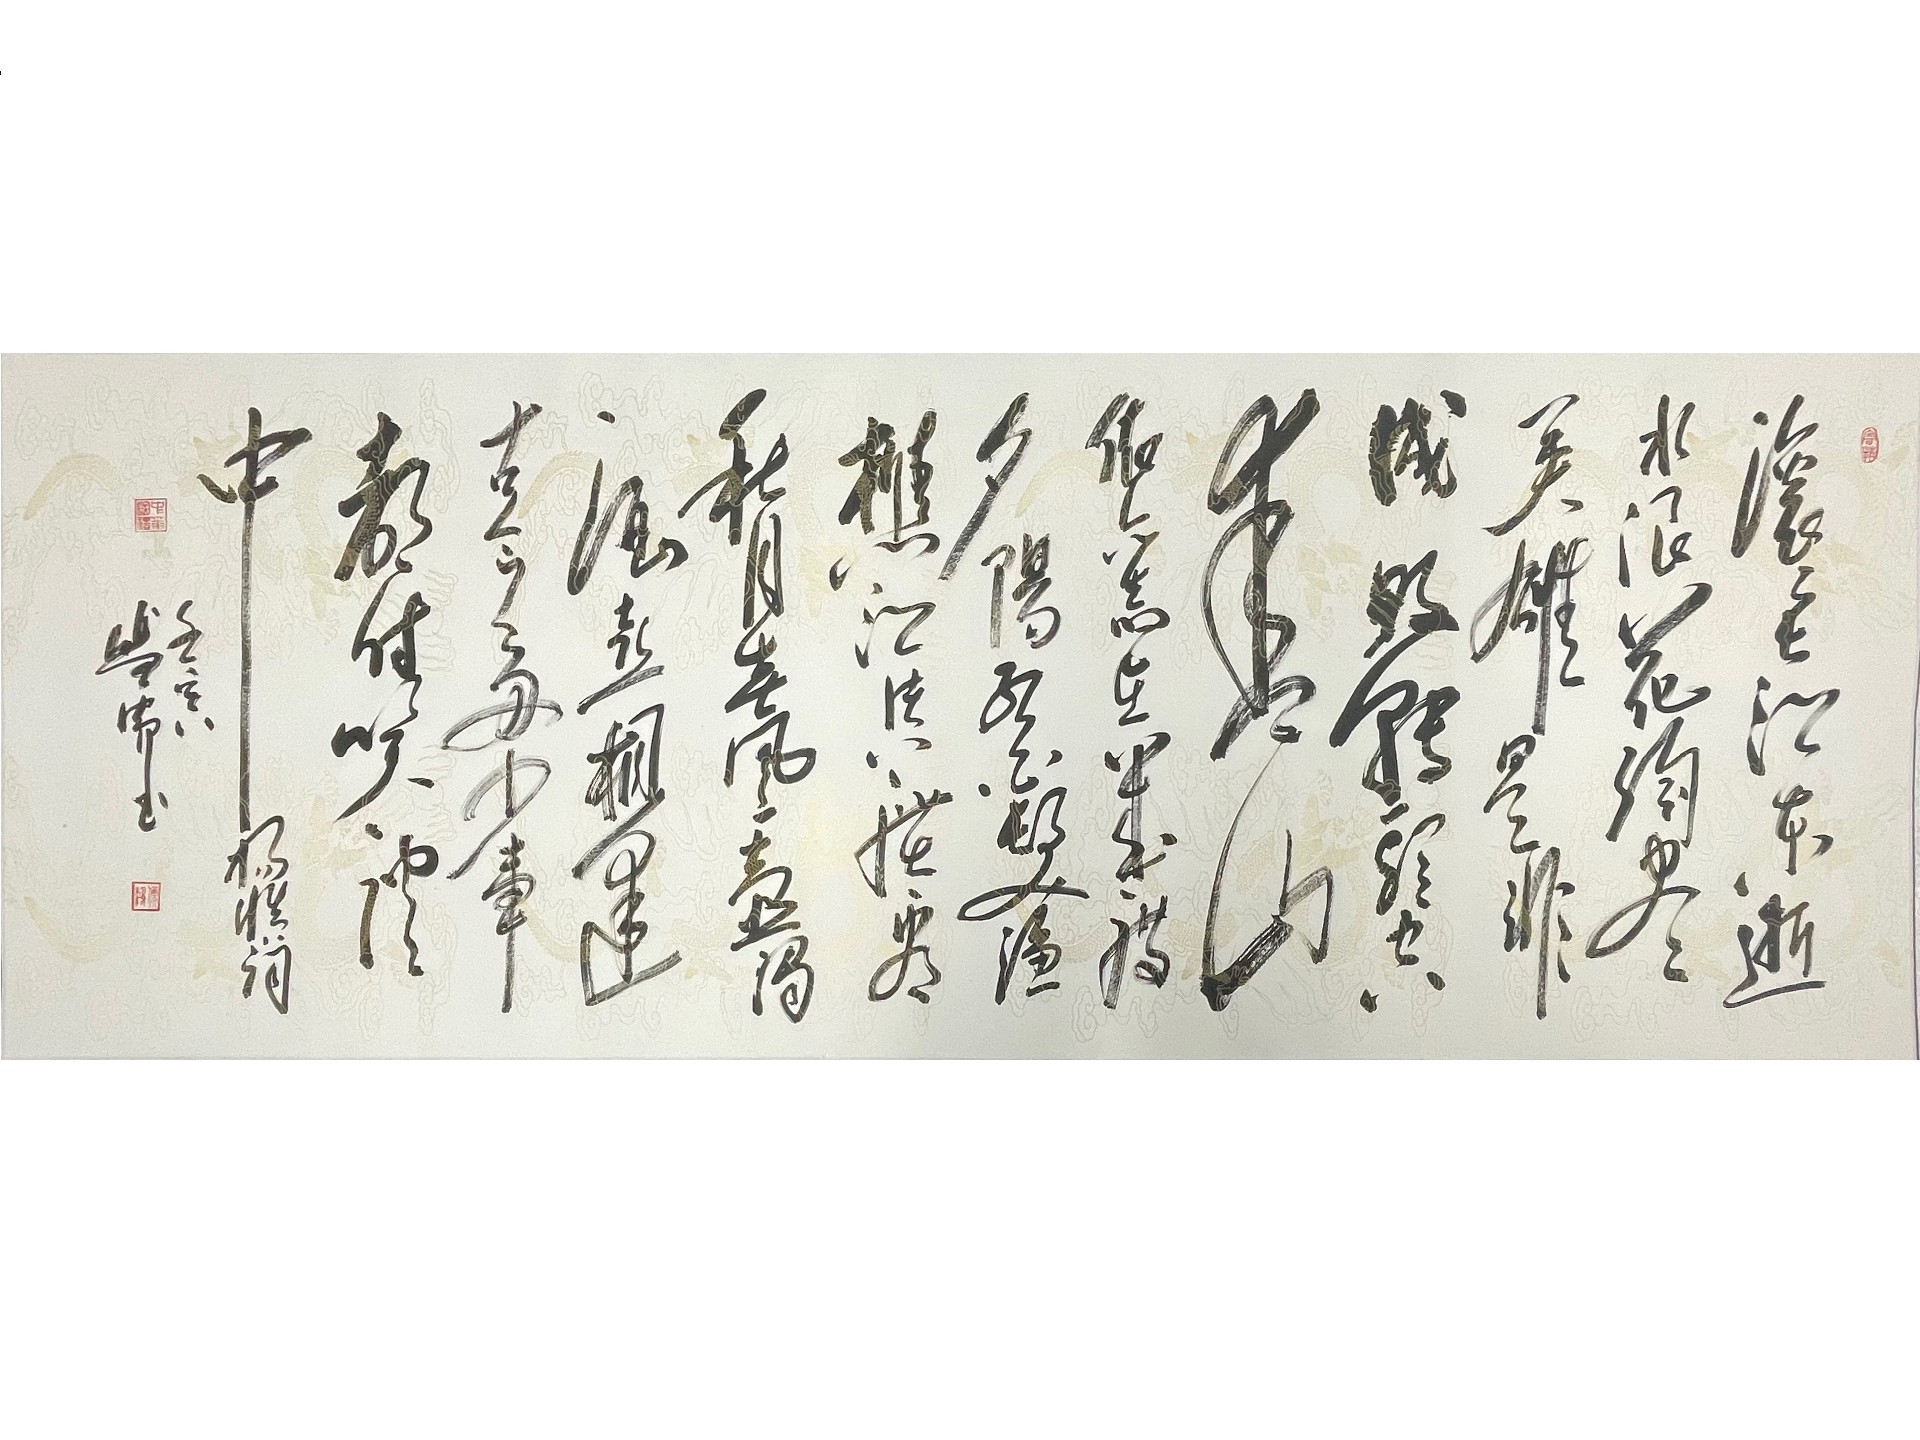 滚滚长江东逝
水浪花淘尽
英雄是非
成败转头空
青山
依舊在几度
夕陽红白髮渔
樵江渚上惯看
秋月春風一壶濁
酒喜相逢
古今多少事
都付笑谈
中 杨慎词
壬寅
书